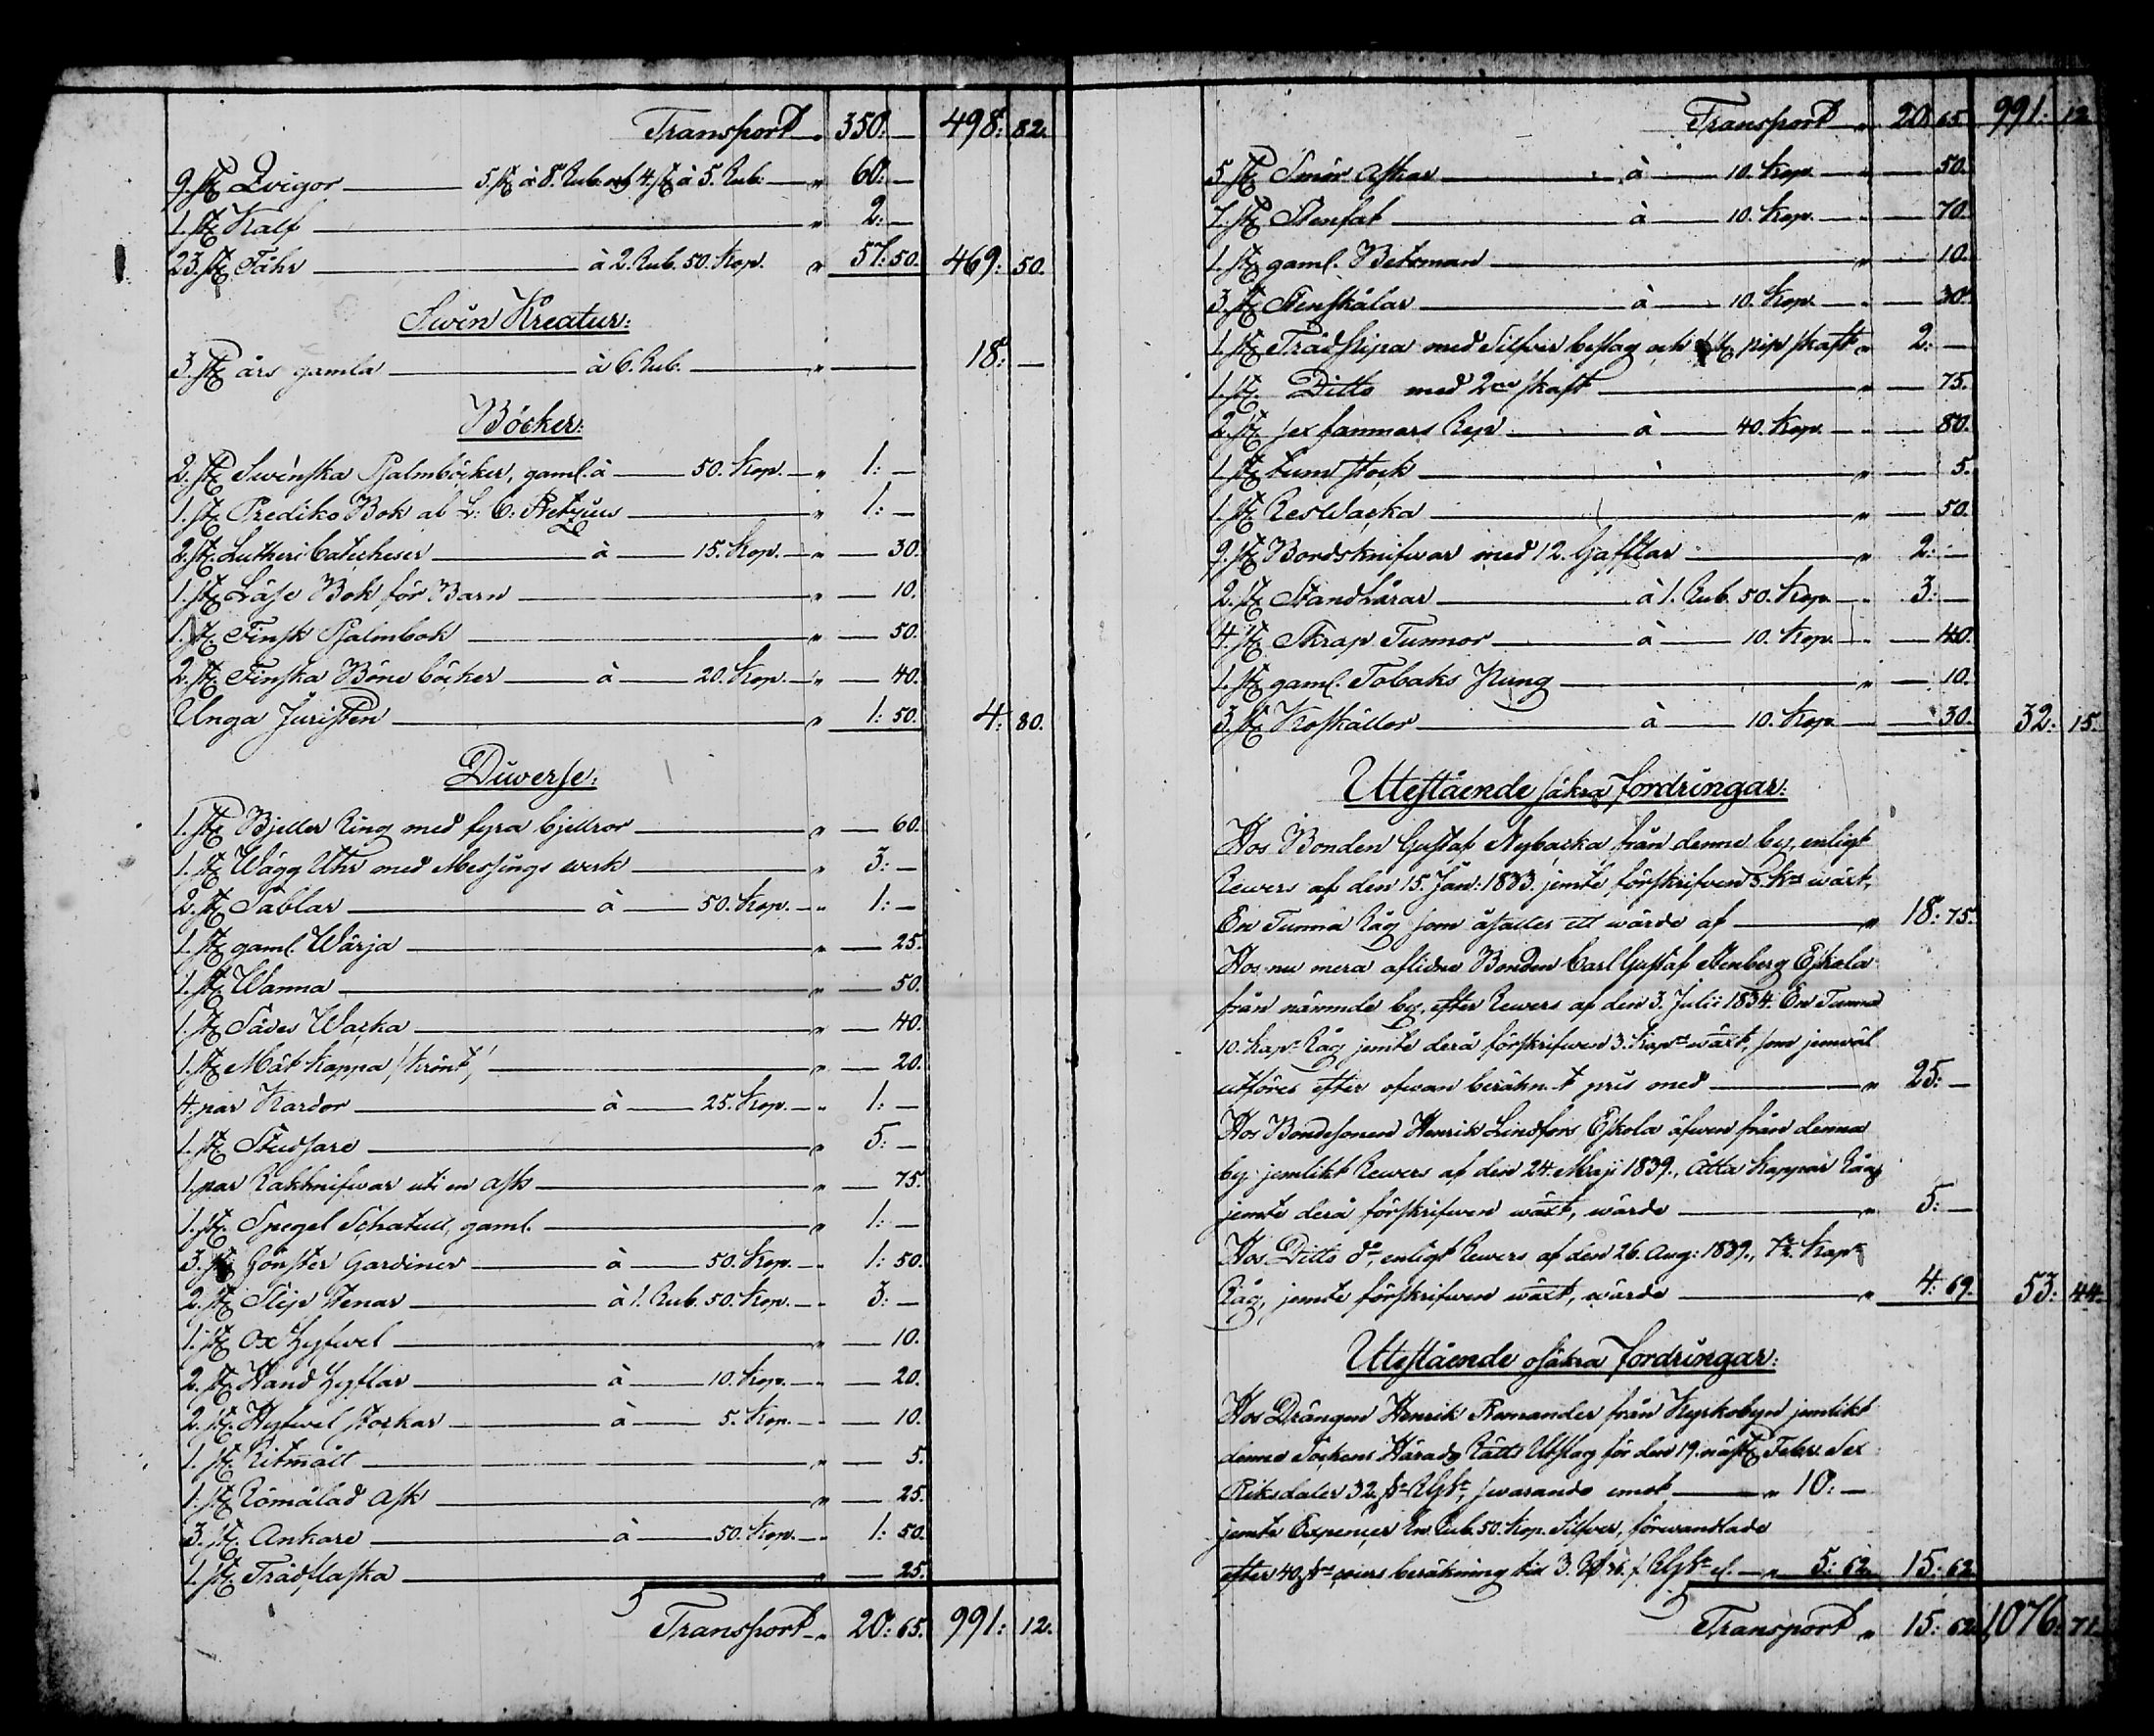 Transport „ 350: — 498: 82.
9. st. Qvigor — 5. st. à 8. Rub. och 4. st. à 5. Rub: — „ 60: —
1. st. Kalf — „ 2: —
23. st. Fåhr — à 2. Rub. 50. Kop. „ 57: 50. 469: 50.
Swin Kreatur:
3. st. års gamla — à 6. Rub. — „ — 18: —
Böcker:
2. st. Swenska Psalmböcker, gaml. à — 50. Kop. — „ 1: —
1. st. Prediko Bok af L: C: Retzius — „ 1: —
2. st. Lutheri Catecheser — à — 15. Kop. — „ — 30.
1. st. Läse Bok för Barn — „ — 10.
1. st. Finsk Psalmbok — „ — 50.
2. st. Finska Böne böcker — à — 20. Kop. — „ — 40.
Unga Juristen — „ 1: 50. 4: 80.
Diverse:
1. st. Bjeller Ring med fyra bjellror — „ — 60.
1. st. Wägg Uhr med Messings werk — „ 3: —
2. st. Sablar — à — 50. Kop. — „ 1: —
1. st. gaml. Wärja — „ — 25.
1. st. Wanna — „ — 50.
1. st. Sädes Wacka — „ — 40.
1. st. Måt Kappa /krönt/ — „ — 20.
4. par Kardor — à — 25. Kop. — „ 1: —
1. st. Studsare — „ 5: —
1. par Rakknifwar uti en ask — „ — 75.
1. st. Spegel Schatull, gaml. — „ 1: —
3. st. Fönster Gardiner — à — 50. Kop. — „ 1: 50.
2. st. Slip stenar — à 1. Rub. 50. Kop. — „ 3: —
1. st. Ox Hyfwel — „ — 10.
2. st. Hand Hyflar — à — 10. Kop. — „ — 20.
2. st. Hyfwel stockar — à — 5. Kop. — „ — 10.
1. st. Ritmått — „ — 5.
1. st. Römålad Ask — „ — 25.
3. st. Ankare — à — 50. Kop. — „ 1: 50.
1. st. Trädflaska — „ — 25.
Transport „ 20: 65. 991: 12.
Transport „ 20: 65. 991: 12.
5. st. Smör Askar — à — 10. Kop. — „ — 50.
7. st. Stenfat — à — 10. Kop. — „ — 70.
1. st. gaml. Betsman — „ — 10.
3. st. Stenskålar — à — 10. Kop. — „ — 30.
1. st. Trädpipa med Silfver beslag och st. pip skaft „ 2: —
1. st. Ditto med 2ne skaft — „ — 75.
2. st. sex famnars Rep — à — 40. Kop. — „ — 80.
1. st. tumstock — „ — 5.
1. st. Reswacka — „ — 50.
9. st. Bordsknifwar med 12. Gafflar — „ 2: —
2. st. Standkärar — à 1. Rub. 50. Kop. — „ 3: —
4. st. Skrap Tunnor — à — 10. Kop. — „ — 40.
1. st. gaml. Tobaks Pung — „ — 10.
3. st. Koskällor — à — 10. Kop. — — 30. 32: 15.
Utestående säkra fordringar:
Hos Bonden Gustaf Nybacka från denne by, enligt
Rewers af den 15. Jan: 1833. jemte förskrifwen 5. Kr wäxt,
En Tunna Råg som åsattes ett wärde af — „ 18: 75.
Hos nu mera aflidne Bonden Carl Gustaf Stenberg Eskola
från nämnde by, efter Rewers af den 3. Julii 1834. En Tunna
10. Kapr Råg jemte derå förskrifwen 3. Kaprs wäxt, som jemwäl
utföres efter ofwan beräkn.t pris med — „ 25: —
Hos Bondesonen Henrik Lindfors Eskola äfwen från denna
by jemlikt Rewers af den 24. Maji 1839., Åtta Kappar Råg
jemte derå förskrifwen wäxt, wärde — „ 5: —
Hos Ditto do, enligt Rewers af den 26. Aug: 1839., 7½. Kapr
Råg, jemte förskrifwen wäxt, wärde — „ 4: 69. 53: 44.
Utestående osäkra fordringar:
Hos Drängen Henrik Ramander från Kyrkobyn jemlikt
denne Sockens Härads Rätts Utslag för den 19. näst. Febr. Sex
Riksdaler 32. sk. RGs, swarande emot — „ 10: —
jemte Expencer En Rub. 50. Kop. Silfver, förwandlade
efter 40. sk. cours beräkning till 3. RGs — „ 5: 62. 15: 62.
Transport „ 15: 62. 1076: 71.